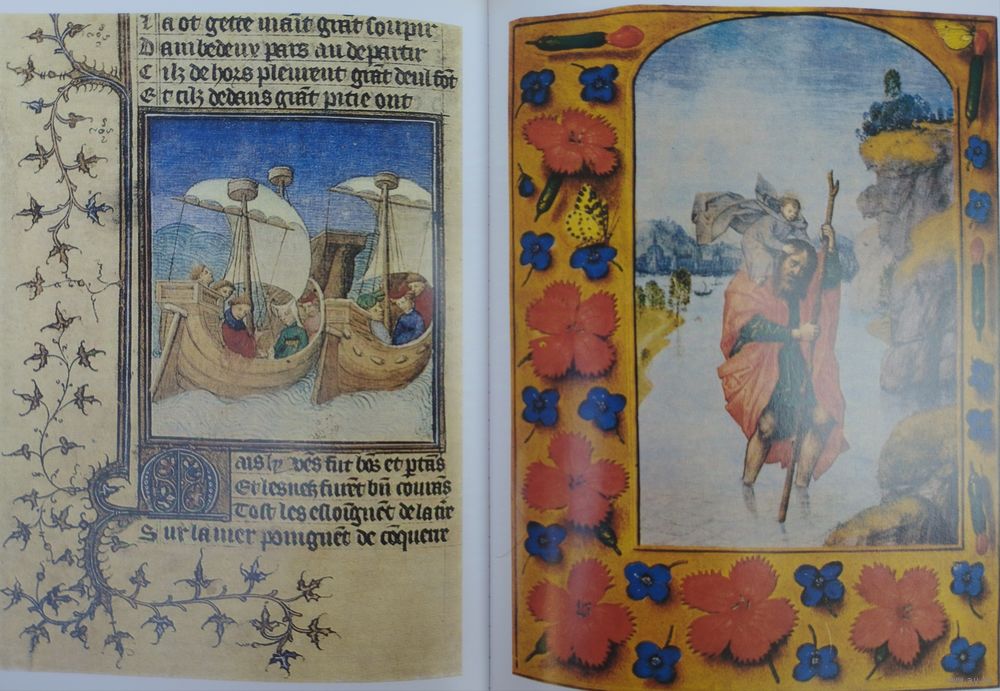 La ot gette maīt grāt soupir
Dambedeux pars au departir
Cilz dehors pleurent grāt deul fōt
Et cilz dedans grāt pitie ont
Mais ly vēs fut bōs et ptās
Et les nefz furēt bn̄ courās
Tost les eslōguēt de la tir
Sur la mer poniguēt de cōquerir